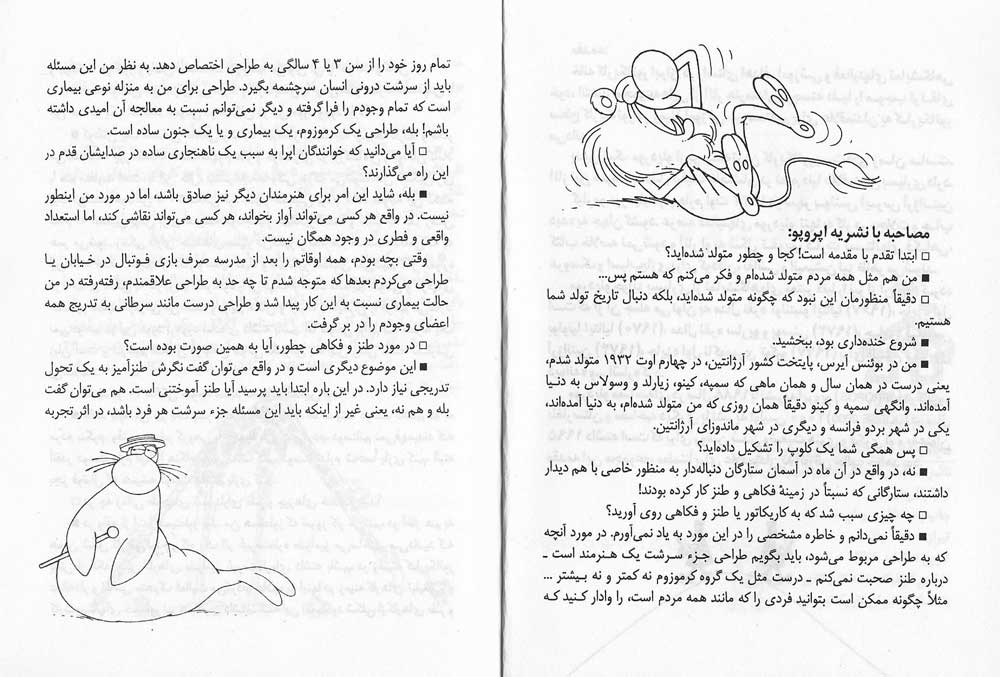 مصاحبه با نشریه اپروپو:
□ ابتدا تقدم با مقدمه است! کجا و چطور متولد شده‌اید؟
■ من هم مثل همه مردم متولد شده‌ام و فکر می‌کنم که هستم پس...
□ دقیقاً منظورمان این نبود که چگونه متولد شده‌اید، بلکه دنبال تاریخ تولد شما
هستیم.
■ شروع خنده‌داری بود، ببخشید.
■ من در بوئنس آیرس، پایتخت کشور آرژانتین، در چهارم اوت ۱۹۳۲ متولد شدم،
یعنی درست در همان سال و همان ماهی که سمپه، کینو، زیارلد و وسولاس به دنیـا
آمده‌اند. وانگهی سمپه و کینو دقیقاً همان روزی که من متولد شده‌ام، به دنیا آمده‌اند،
یکی در شهر بردو فرانسه و دیگری در شهر ماندوزای آرژانتین.
□ پس همگی شما یک کلوپ را تشکیل داده‌اید؟
■ نه، در واقع در آن ماه در آسمان ستارگان دنباله‌دار به منظور خاصی با هم دیدار
داشتند، ستارگانی که نسبتاً در زمینهٔ فکاهی و طنز کار کرده بودند!
□ چه چیزی سبب شد که به کاریکاتور یا طنز و فکاهی روی آورید؟
■ دقیقاً نمی‌دانم و خاطره مشخصی را در این مورد به یاد نمی‌آورم. در مورد آنچه
که به طراحی مربوط می‌شود، باید بگویم طراحی جـزء سرشت یک هـنرمند است ـ
درباره طنز صحبت نمی‌کنم ـ درست مثل یک گروه کرموزوم نه کمتر و نه بـیشتر ...
مثلاً چگونه ممکن است بتوانید فردی را که مانند همه مردم است، را وادار کـنید کـه
تمام روز خود را از سن ۳ یا ۴ سالگی به طراحی اختصاص دهد. به نظر من این مسئله
باید از سرشت درونی انسان سرچشمه بگیرد. طراحی برای من به منزله نوعی بیماری
است که تمام وجودم را فرا گرفته و دیگر نمی‌توانم نسبت به معالجه آن امیدی داشته
باشم! بله، طراحی یک کرموزوم، یک بیماری و یا یک جنون ساده است.
□ آیا می‌دانید که خوانندگان اپرا به سبب یک ناهنجاری ساده در صدایشان قدم در
این راه می‌گذارند؟
■ بله، شاید این امر برای هنرمندان دیگر نیز صادق باشد، اما در مورد من اینطور
نیست. در واقع هر کسی می‌تواند آواز بخواند، هر کسی می‌تواند نقاشی کند، اما استعداد
واقعی و فطری در وجود همگان نیست.
وقتی بچه بودم، همه اوقاتم را بعد از مدرسه صرف بازی فوتبال در خیابان یـا
طراحی می‌کردم بعدها که متوجه شدم تا چه حد به طراحی علاقمندم، رفته‌رفته در من
حالت بیماری نسبت به این کار پیدا شد و طراحی درست مانند سرطانی به تدریج همه
اعضای وجودم را در بر گرفت.
□ در مورد طنز و فکاهی چطور، آیا به همین صورت بوده است؟
■ این موضوع دیگری است و در واقع می‌توان گفت نگرش طنزآمیز به یک تحول
تدریجی نیاز دارد. در این باره ابتدا باید پرسید آیا طنز آموختنی است. هم می‌توان گفت
بله و هم نه، یعنی غیر از اینکه باید این مسئله جزء سرشت هر فرد باشد، در اثر تجربه